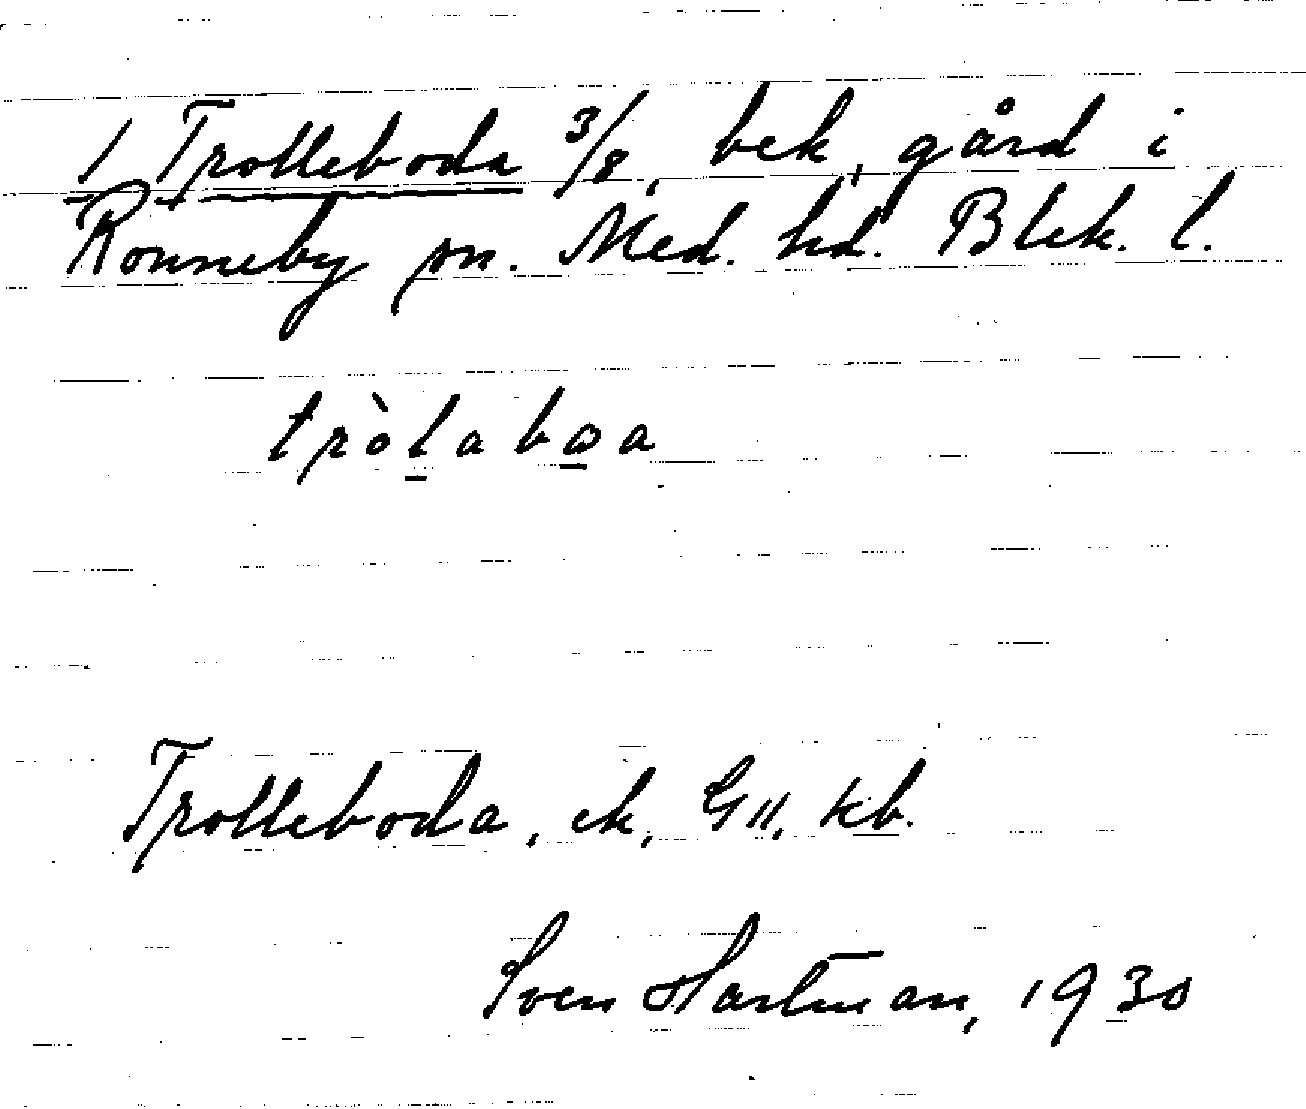 1 Trolleboda 3/8, bek, gård i
Ronneby sn. Med. hd. Blek. l.
tròlaboa
Trolleboda, ek, GII, kb.
Sven Hartman, 1930